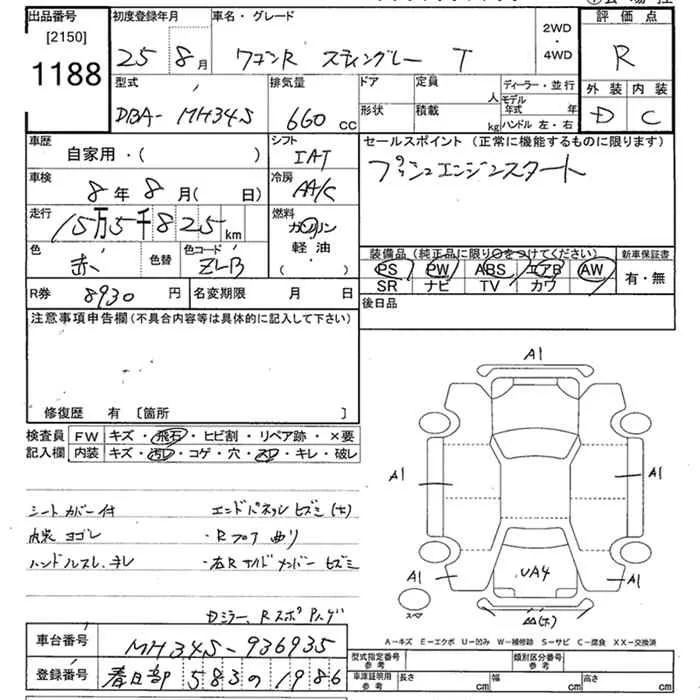 出品番号
[2150]
1188
初度登録年月
25 8月
車名・グレード
ワゴンR スティングレー T
2WD
・
4WD
評価点
R
型式
DBA- MH34S
排気量
660 cc
ドア
形状
定員
人
積載
kg
ディーラー・並行
モデル年式 年
ハンドル 左・右
外装 内装
D C
車歴
自家用・( )
シフト
IAT
セールスポイント (正常に機能するものに限ります)
プッシュエンジンスタート
車検
8年8月(日)
冷房
AA/C
走行
15万5千825km
燃料
ガソリン
軽油
( ・ )
色
赤
色替
色コード
ZLB
装備品(純正品に限り○をつけてください)
新車保証書
PS PW ABS エアB AW
SR ナビ TV カワ
有・無
R券 8930円
名変期限 月 日
後日品
注意事項申告欄(不具合内容等は具体的に記入して下さい)
修復歴 有 〔箇所 〕
検査員 FW キズ・飛石・ヒビ割・リペア跡・×要
記入欄 内装 キズ・汚レ・コゲ・穴・スレ・キレ・破レ
シートカバー付 エンドパネル ヒズミ(大)
内装ヨゴレ ・Rフロア曲り
ハンドルスレ、キレ ・右Rサイドメンバー ヒズミ
Dミラー、Rスポ
A1
A1
A1
A1
A1
UA4
スペア
A－キズ E－エクボ U－凹み W－補修跡 S－サビ C－腐食 XX－交換済
車台番号 MH34S-936935
登録番号 春日部 583 の 1986
型式指定番号
参考
類別区分番号
参考
車庫証明用
参考
長さ cm
幅 cm
高さ cm